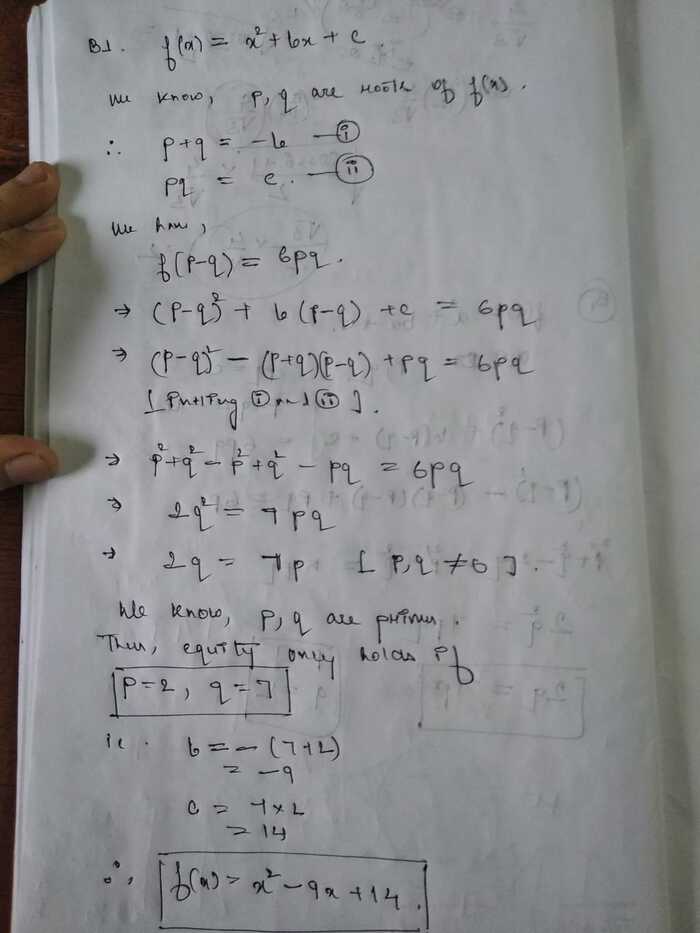 B1. f(x) = x² + bx + c.
We know, p, q are roots of f(x).
∴ p+q = -b —(i)
pq = c. —(ii)
We have,
f(p-q) = 6pq.
→ (p-q)² + b(p-q) + c = 6pq
→ (p-q)² - (p+q)(p-q) + pq = 6pq
[Putting (i) and (ii)].
→ p² + q² - p² + q² - pq = 6pq
→ 2q² = 7pq
→ 2q = 7p [p,q ≠ 0].
We know, p, q are primes.
Thus, equity only holds if
p=2, q=7
ie. b = -(7+2)
= -9
c = 7×2
= 14
∴, f(x) = x² - 9x + 14.